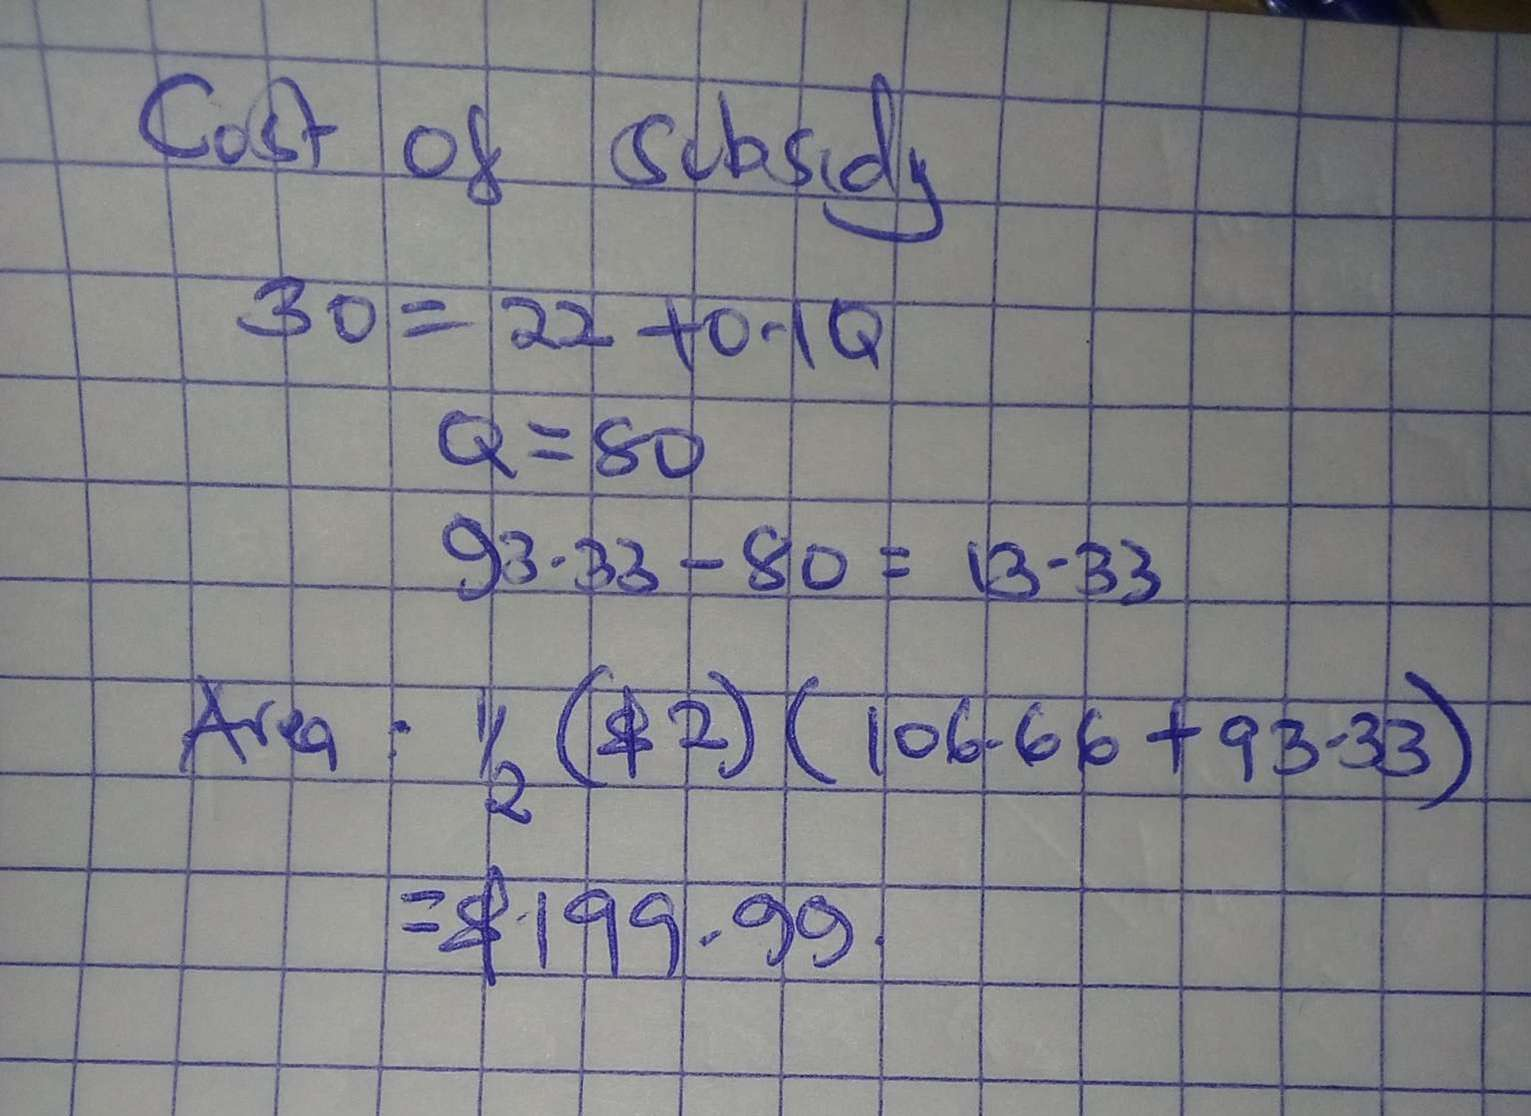 Cost of subsidy
30 = 22 + 0.1Q
Q = 80
93.33 - 80 = 13.33
Area : 1/2 ($2) (106.66 + 93.33)
= $199.99.